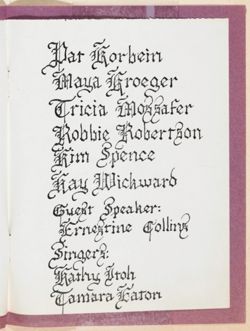 Pat Korbein
Maya Kroeger
Tricia Mozzafer
Robbie Robertson
Kim Spence
Kay Wickward
Guest Speaker:
Ernestine Collins
Singers:
Kathy Itoh
Tamara Eaton